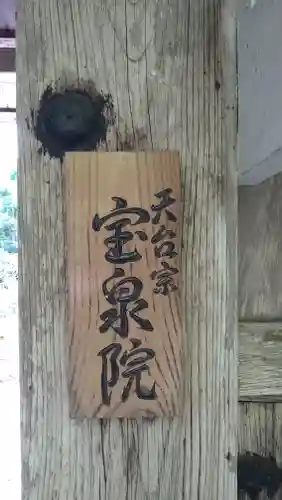 天台宗
宝泉院